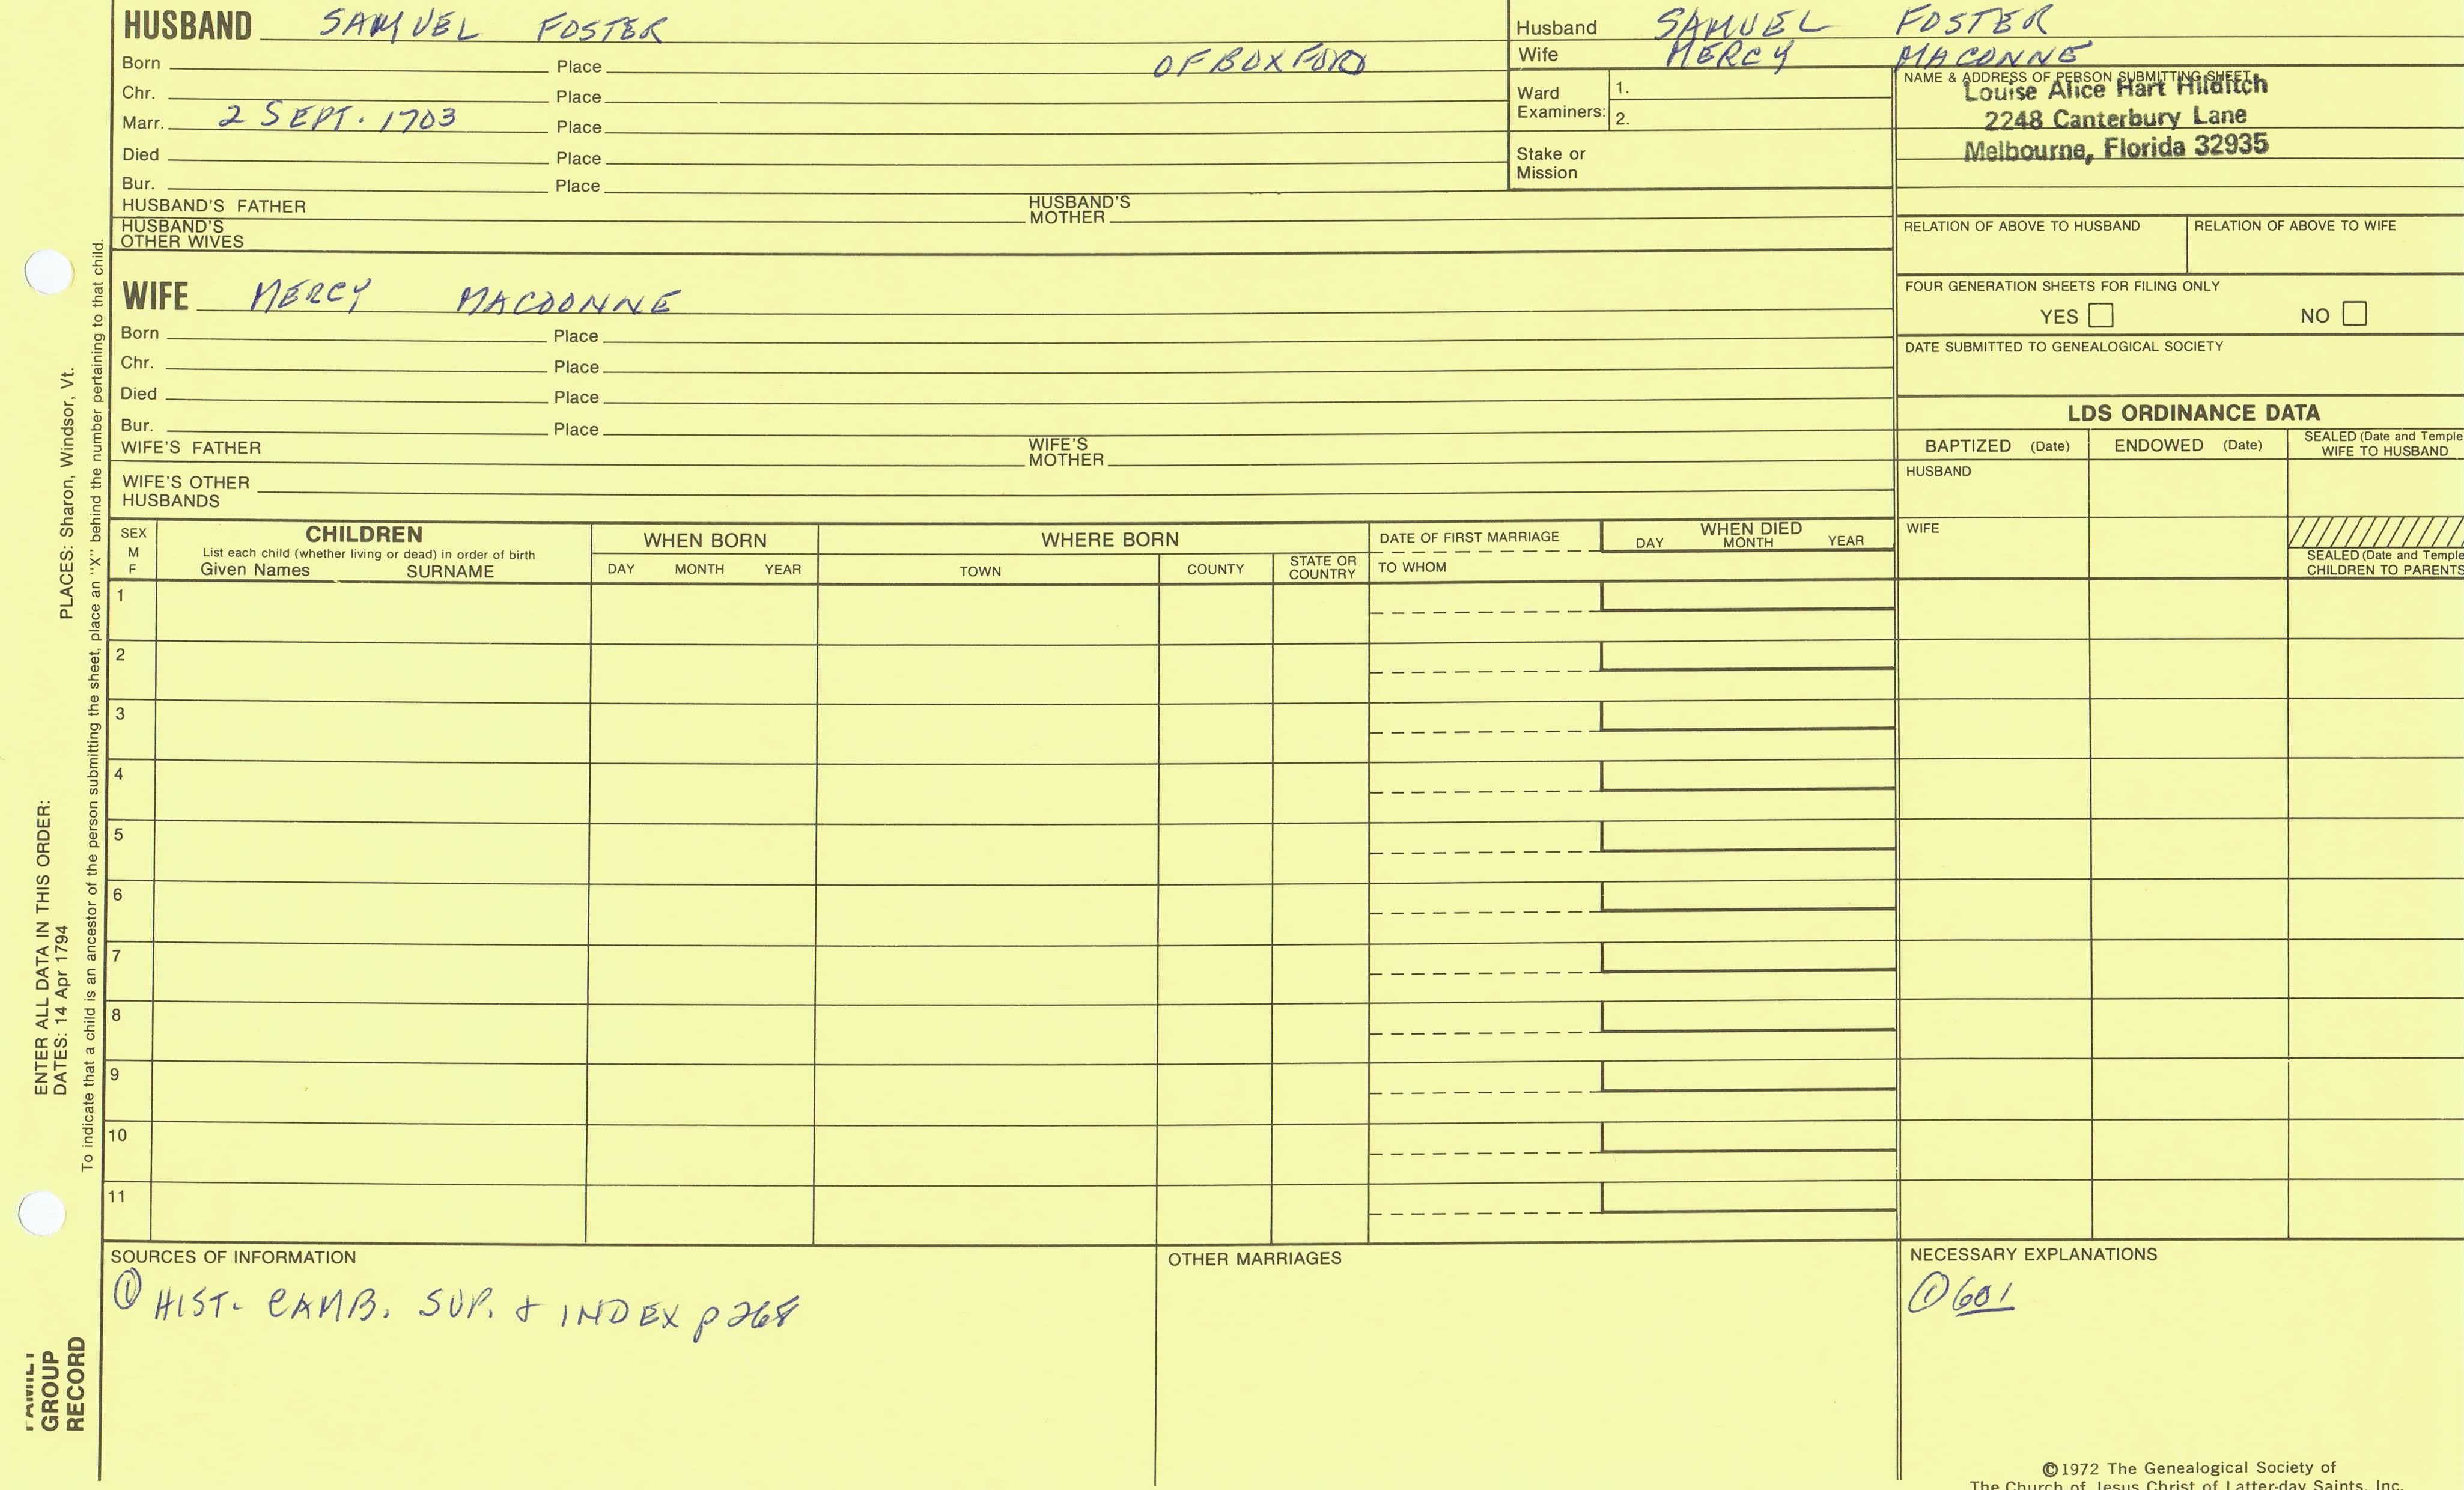 HUSBAND SAMUEL FOSTER
Born Place OF BOXFORD
Chr. Place
Marr. 2 SEPT. 1703 Place
Died Place
Bur. Place
HUSBAND'S FATHER HUSBAND'S MOTHER
HUSBAND'S OTHER WIVES
Husband SAMUEL FOSTER
Wife MERCY MACONNE
Ward Examiners: 1.
2.
Stake or Mission
NAME & ADDRESS OF PERSON SUBMITTING SHEET
Louise Alice Hart Hilditch
2248 Canterbury Lane
Melbourne, Florida 32935
RELATION OF ABOVE TO HUSBAND RELATION OF ABOVE TO WIFE
FOUR GENERATION SHEETS FOR FILING ONLY
YES NO
DATE SUBMITTED TO GENEALOGICAL SOCIETY
WIFE MERCY MACOONNE
Born Place
Chr. Place
Died Place
Bur. Place
WIFE'S FATHER WIFE'S MOTHER
WIFE'S OTHER HUSBANDS
LDS ORDINANCE DATA
BAPTIZED (Date) ENDOWED (Date) SEALED (Date and Temple
WIFE TO HUSBAND
HUSBAND
WIFE
SEALED (Date and Temple
CHILDREN TO PARENTS
SEX
M
F
CHILDREN
List each child (whether living or dead) in order of birth
Given Names SURNAME
WHEN BORN
DAY MONTH YEAR
WHERE BORN
TOWN COUNTY STATE OR COUNTRY
DATE OF FIRST MARRIAGE
TO WHOM
WHEN DIED
DAY MONTH YEAR
1
2
3
4
5
6
7
8
9
10
11
SOURCES OF INFORMATION
① HIST. CAMB. SUP. & INDEX p 268
OTHER MARRIAGES
NECESSARY EXPLANATIONS
① 601
©1972 The Genealogical Society of
The Church of Jesus Christ of Latter-day Saints, Inc.
PLACES: Sharon, Windsor, Vt.
ENTER ALL DATA IN THIS ORDER:
DATES: 14 Apr 1794
To indicate that a child is an ancestor of the person submitting the sheet, place an "X" behind the number pertaining to that child.
FAMILY
GROUP
RECORD